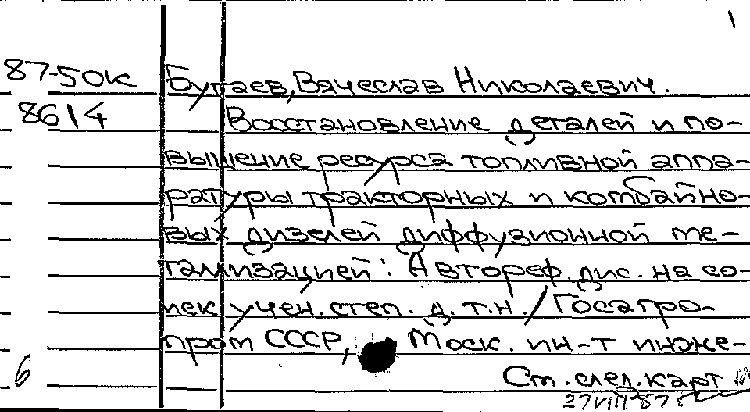 87-50к
8614
Бугаев, Вячеслав Николаевич.
Восстановление деталей и по-
вышение ресурса топливной аппа-
ратуры тракторных и комбайно-
вых дизелей диффузионной ме-
таллизацией: Автореф. дис. на со-
иск учен. степ. д.т.н. / Госагро-
пром СССР, Моск. ин-т инже-
6
См. след. карт
27 VIII 87